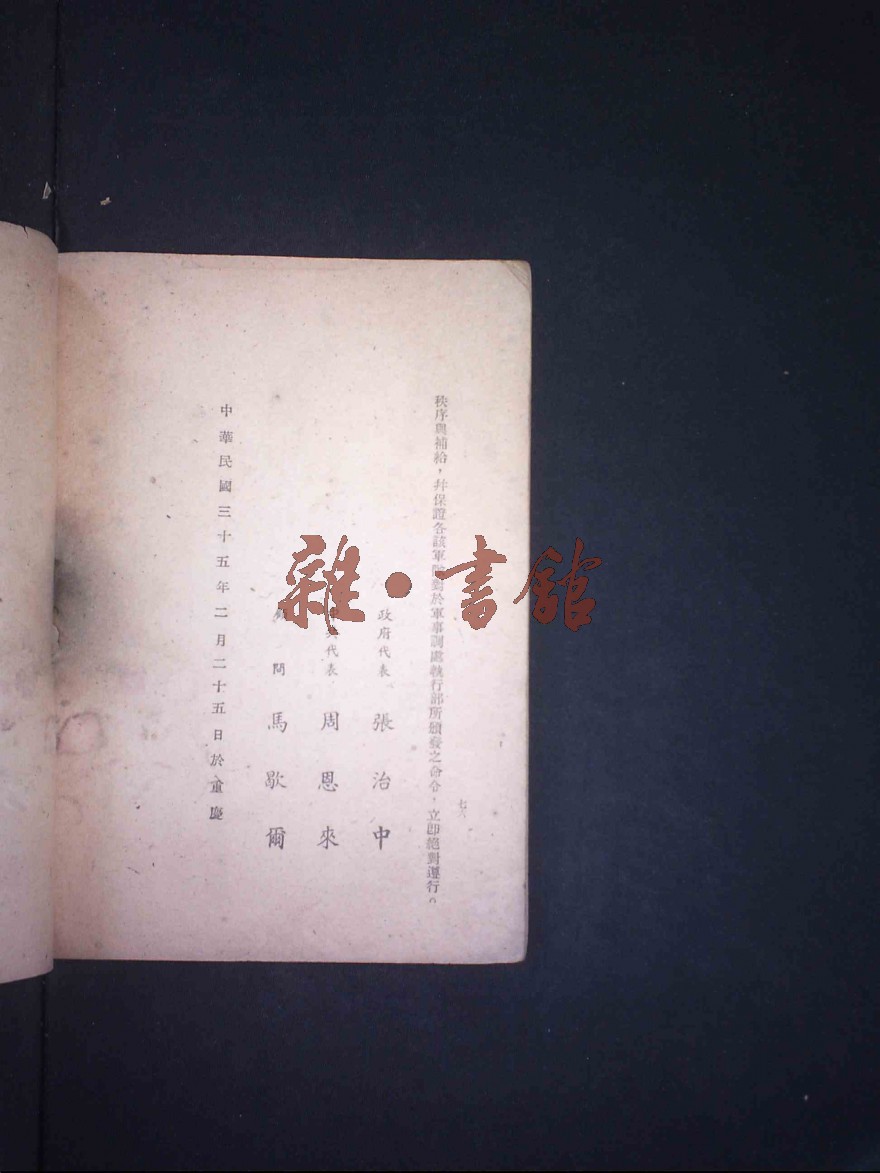 秩序與補給，幷保證各該軍隊對於軍事調處執行部所頒發之命令，立卽絕對遵行。
政府代表 張治中
代表 周恩來
問 馬歇爾
中華民國三十五年二月二十五日於重慶
七六
雜·書館